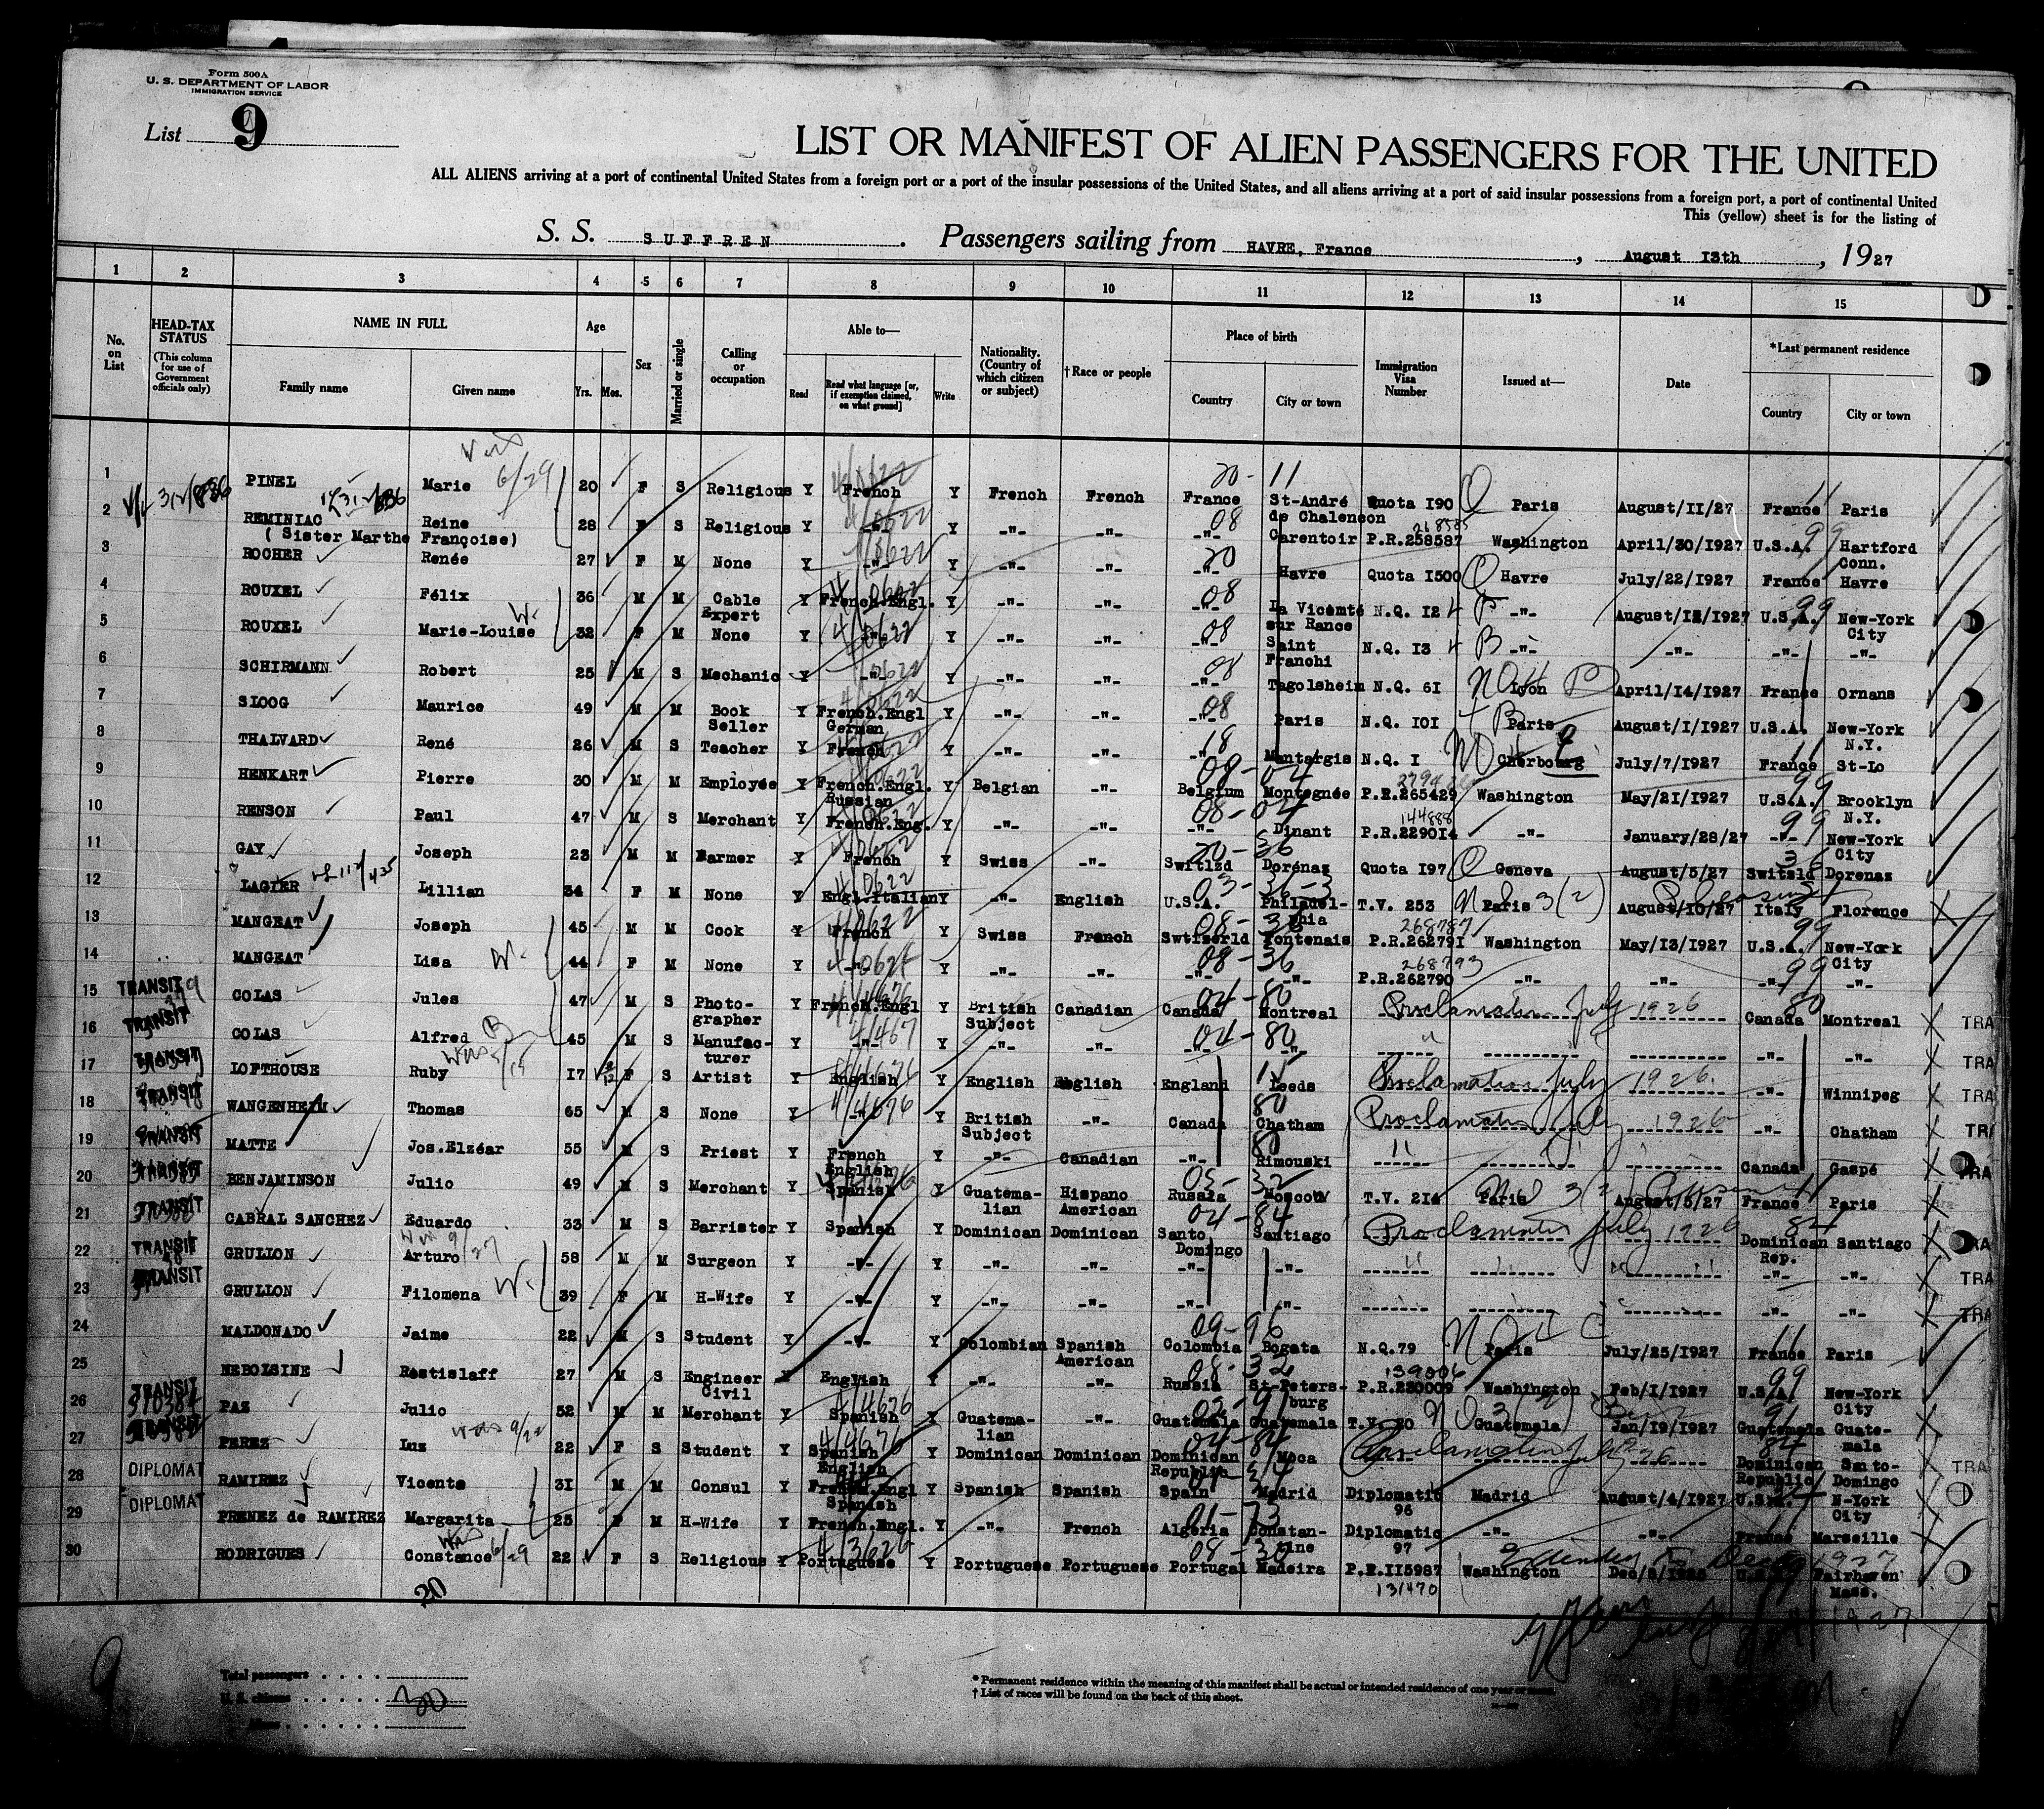 Form 500A
U. S. DEPARTMENT OF LABOR
IMMIGRATION SERVICE
List 9
LIST OR MANIFEST OF ALIEN PASSENGERS FOR THE UNITED
ALL ALIENS arriving at a port of continental United States from a foreign port or a port of the insular possessions of the United States, and all aliens arriving at a port of said insular possessions from a foreign port, a port of continental United
This (yellow) sheet is for the listing of
S. S. SUFFREN. Passengers sailing from HAVRE, France, August 13th, 1927
1 2 3 4 5 6 7 8 9 10 11 12 13 14 15
No. on List
HEAD-TAX STATUS
(This column for use of Government officials only)
NAME IN FULL
Family name Given name
Age
Yrs. Mos.
Sex
Married or single
Calling or occupation
Able to—
Read
Read what language [or, if exemption claimed, on what ground]
Write
Nationality. (Country of which citizen or subject)
†Race or people
Place of birth
Country City or town
Immigration Visa Number
Issued at—
Date
*Last permanent residence
Country City or town
1 PINEL Marie 20 F S Religious Y French Y French French France St-André de Chalencon Quota 190 Paris August/11/27 France Paris
2 REMINIAC Reine 28 F S Religious Y -"- Y -"- -"- -"- Carentoir P.R.258587 Washington April/30/1927 U.S.A. Hartford Conn.
( Sister Marthe Françoise)
3 ROCHER Renée 27 F M None Y -"- Y -"- -"- -"- Havre Quota 1500 Havre July/22/1927 France Havre
4 ROUXEL Félix 36 M M Cable Expert Y French.Engl. Y -"- -"- -"- La Vicomté sur Rance N.Q. 12 -"- August/12/1927 U.S.A. New-York City
5 ROUXEL Marie-Louise 32 F M None Y -"- Y -"- -"- -"- Saint Franchi N.Q. 13 -"- -"- -"- -"-
6 SCHIRMANN Robert 25 M S Mechanic Y -"- Y -"- -"- -"- Tagolsheim N.Q. 61 Lyon April/14/1927 France Ornans
7 SLOOG Maurice 49 M M Book Seller Y French.Engl German Y -"- -"- -"- Paris N.Q. 101 Paris August/1/1927 U.S.A. New-York N.Y.
8 THALVARD René 26 M S Teacher Y French Y -"- -"- -"- Montargis N.Q. 1 Cherbourg July/7/1927 France St-Lo
9 HENKART Pierre 30 M M Employée Y French.Engl. Russian Y Belgian -"- Belgium Montegnée P.R.265429 Washington May/21/1927 U.S.A. Brooklyn N.Y.
10 RENSON Paul 47 M S Merchant Y French.Eng. Y -"- -"- -"- Dinant P.R.229014 -"- January/28/27 -"- New-York City
11 GAY Joseph 23 M M Farmer Y French Y Swiss -"- Switlzd Dorénaz Quota 197 Geneva August/5/27 Switzld Dorenaz
12 LAGIER Lillian 34 F M None Y Engl.Italian Y -"- English U.S.A. Philadelphia T.V. 253 Paris August/10/27 Italy Florence
13 MANGEAT Joseph 45 M M Cook Y French Y Swiss French Swtizerld Fontenais P.R.262791 Washington May/13/1927 U.S.A. New-York City
14 MANGEAT Lisa 44 F M None Y -"- Y -"- -"- -"- -"- P.R.262790 -"- -"- -"- -"-
15 TRANSIT COLAS Jules 47 M S Photographer Y French.Engl Y British Subject Canadian Canada Montreal Proclamation July 1926 Canada Montreal TRA
16 TRANSIT COLAS Alfred 45 M S Manufacturer Y -"- Y -"- -"- -"- -"- -"- -"- TRA
17 TRANSIT LOFTHOUSE Ruby 17 F S Artist Y English Y English English England Leeds Proclamation July 1926. -"- Winnipeg TRA
18 TRANSIT WANGENHEIM Thomas 65 M S None Y -"- Y British Subject -"- Canada Chatham Proclamation July 1926 -"- Chatham TRA
19 TRANSIT MATTE Jos.Elzéar 55 M S Priest Y French English Y -"- Canadian -"- Rimouski Canada Gaspé TRA
20 TRANSIT BENJAMINSON Julio 49 M S Merchant Y Spanish Y Guatemalian Hispano American Russia Moscou T.V. 214 Paris August/5/27 France Paris
21 TRANSIT CABRAL SANCHEZ Eduardo 33 M S Barrister Y Spanish Y Dominican Dominican Santo Domingo Santiago Proclamation July 1926 Dominican Rep. Santiago TRA
22 TRANSIT GRULLON Arturo 58 M M Surgeon Y -"- Y -"- -"- -"- -"- -"- -"- TRA
23 TRANSIT GRULLON Filomena 39 F M H-Wife Y -"- Y -"- -"- -"- -"- -"- -"- TRA
24 MALDONADO Jaime 22 M S Student Y -"- Y Colombian Spanish American Colombia Bogata N.Q.79 Paris July/25/1927 France Paris
25 NEBOLSINE Rostislaff 27 M S Engineer Civil Y English Y -"- -"- Russia St-Petersburg P.R.230009 Washington Feb/1/1927 U.S.A. New-York City
26 TRANSIT PAZ Julio 52 M M Merchant Y Spanish Y Guatemalian -"- Guatemala Guatemala T.V. 20 Guatemala Jan/19/1927 Guatemala Guatemala
27 TRANSIT PEREZ Luz 22 F S Student Y Spanish English Y Dominican Dominican Dominican Republic Moca Proclamation July 26 Dominican Republic Santo-Domingo TRA
28 DIPLOMAT RAMIREZ Vicente 31 M M Consul Y French.Engl Spanish Y Spanish Spanish Spain Madrid Diplomatic 96 Madrid August/4/1927 U.S.A. N-York City
29 DIPLOMAT PRENEZ de RAMIREZ Margarita 25 F M H-Wife Y French.Engl. Y -"- French Algeria Constantine Diplomatic 97 -"- -"- France Marseille
30 RODRIGUES Constance 22 F S Religious Y Portuguese Y Portuguese Portuguese Portugal Madeira P.R.115987 131470 Washington U.S.A. Fairhaven Mass.
20
9
Total passengers
U. S. citizens 30
Aliens
* Permanent residence within the meaning of this manifest shall be actual or intended residence of one year or more.
† List of races will be found on the back of this sheet.